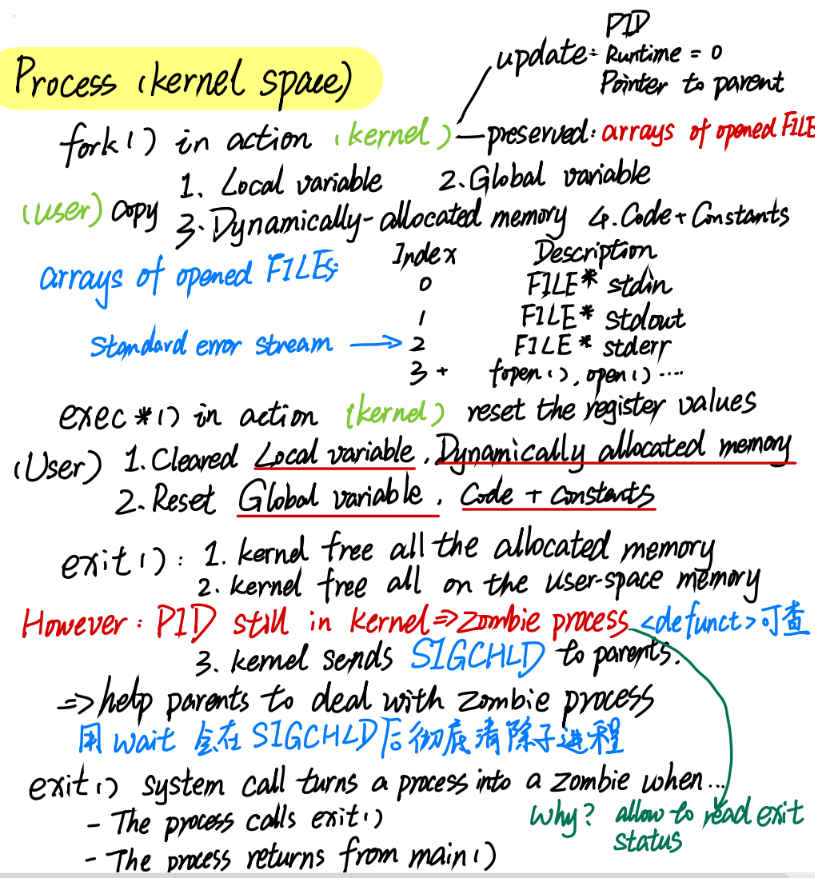 PID
update: Runtime = 0
Pointer to parent
Process (kernel space)
fork() in action (kernel) preserved: arrays of opened FILE
(user) copy 1. Local variable 2. Global variable
3. Dynamically-allocated memory 4. Code + Constants
arrays of opened FILEs
Index Description
0 FILE* stdin
1 FILE* stdout
Standard error stream → 2 FILE* stderr
3 + fopen(), open() ....
exec*() in action (kernel) reset the register values
(User) 1. Cleared Local variable, Dynamically allocated memory
2. Reset Global variable, Code + constants
exit(): 1. kernel free all the allocated memory
2. kernel free all on the user-space memory
However: PID still in kernel ⇒ zombie process <defunct>可查
3. kernel sends SIGCHLD to parents.
⇒ help parents to deal with zombie process
用 wait 会在 SIGCHLD后彻底清除子进程
exit() system call turns a process into a zombie when...
- The process calls exit()
- The process returns from main()
Why? allow to read exit
status